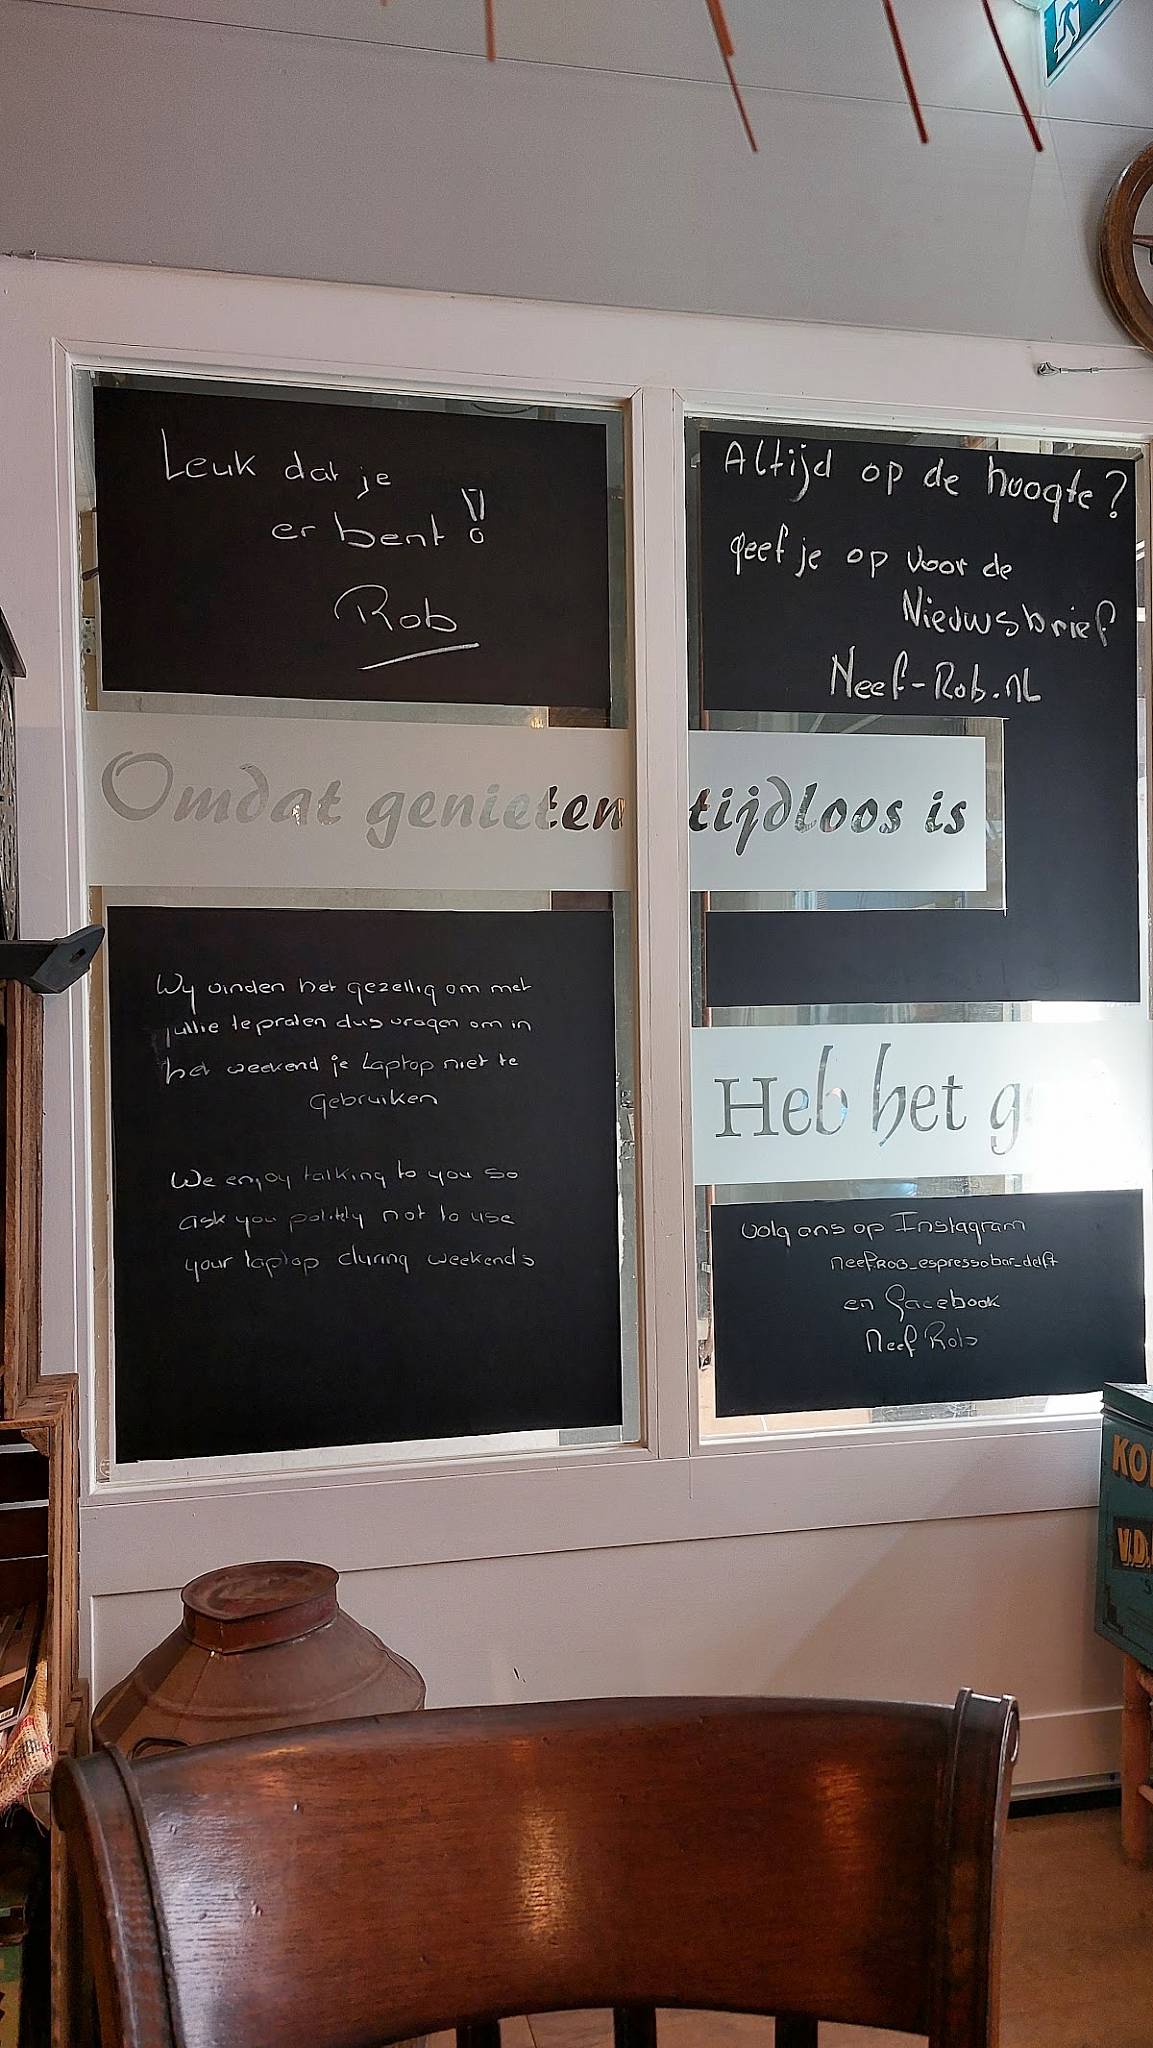 Leuk dat je
er bent!!
Rob
Altijd op de hoogte?
geef je op voor de
Nieuwsbrief
Neef-Rob.nL
Omdat genieten tijdloos is
Wy vinden het gezellig om met
jullie te praten dus vragen om in
het weekend je Laptop niet te
gebruiken
We enjoy talking to you so
ask you politily not to use
your laptop during weekends
Heb het g
volg ons op Instagram
neef.ROB_espressobar_delft
en facebook
Neef Rob
KO
V.D.